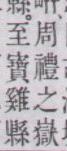 周禮之嶽
縣。至寶雞縣